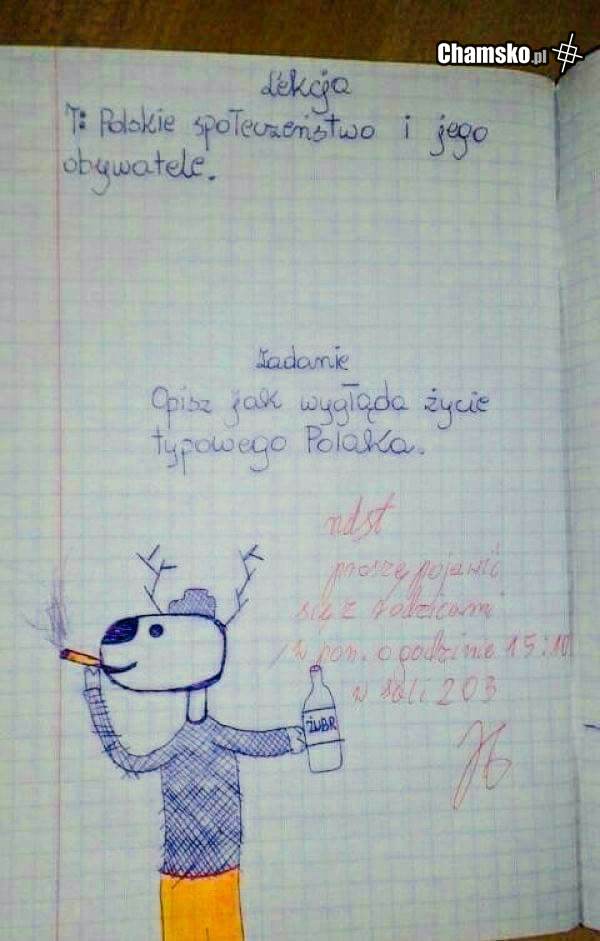 Chamsko.pl
Lekcja
T: Polskie społeczeństwo i jego
obywatele.
Zadanie
Opisz jak wygłąda życie
typowego Polaka.
ndst
proszę pojawić
się z rodzicami
w pon. o godzinie 15:10
w sali 203
ŻUBR